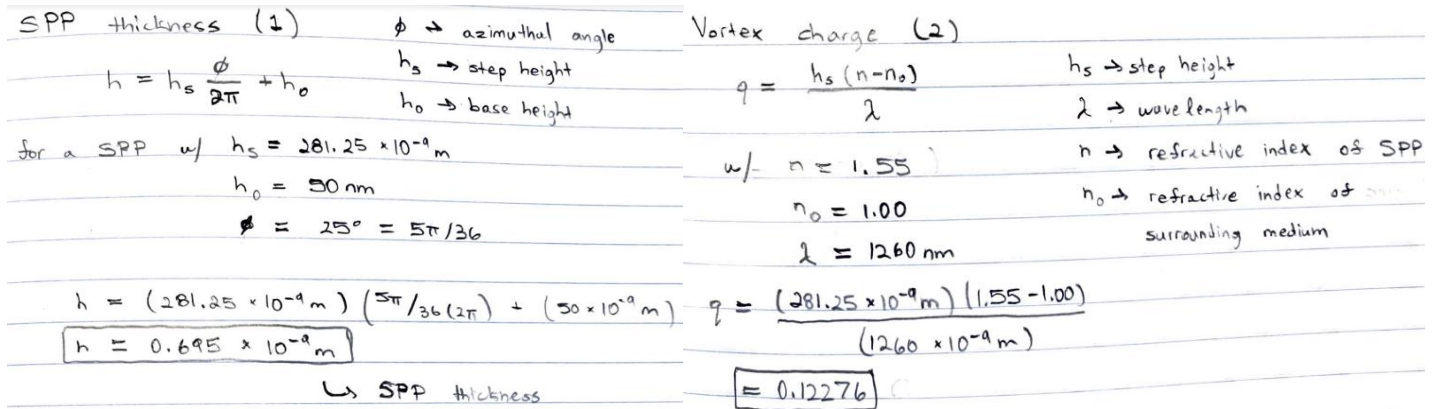 SPP thickness (1)
ϕ → azimuthal angle
h = hₛ ϕ/2π + h₀
hₛ → step height
h₀ → base height
for a SPP w/ hₛ = 281.25 × 10⁻⁹ m
h₀ = 50 nm
ϕ = 25° = 5π/36
h = (281.25 × 10⁻⁹ m) (5π/36(2π) + (50 × 10⁻⁹ m)
h = 0.695 × 10⁻⁹ m
↳ SPP thickness
Vortex charge (2)
q = hₛ (n-n₀) / λ
hₛ → step height
λ → wavelength
n → refractive index of SPP
n₀ → refractive index of
surrounding medium
w/ n = 1.55
n₀ = 1.00
λ = 1260 nm
q = (281.25 × 10⁻⁹ m) (1.55 - 1.00) / (1260 × 10⁻⁹ m)
= 0.12276